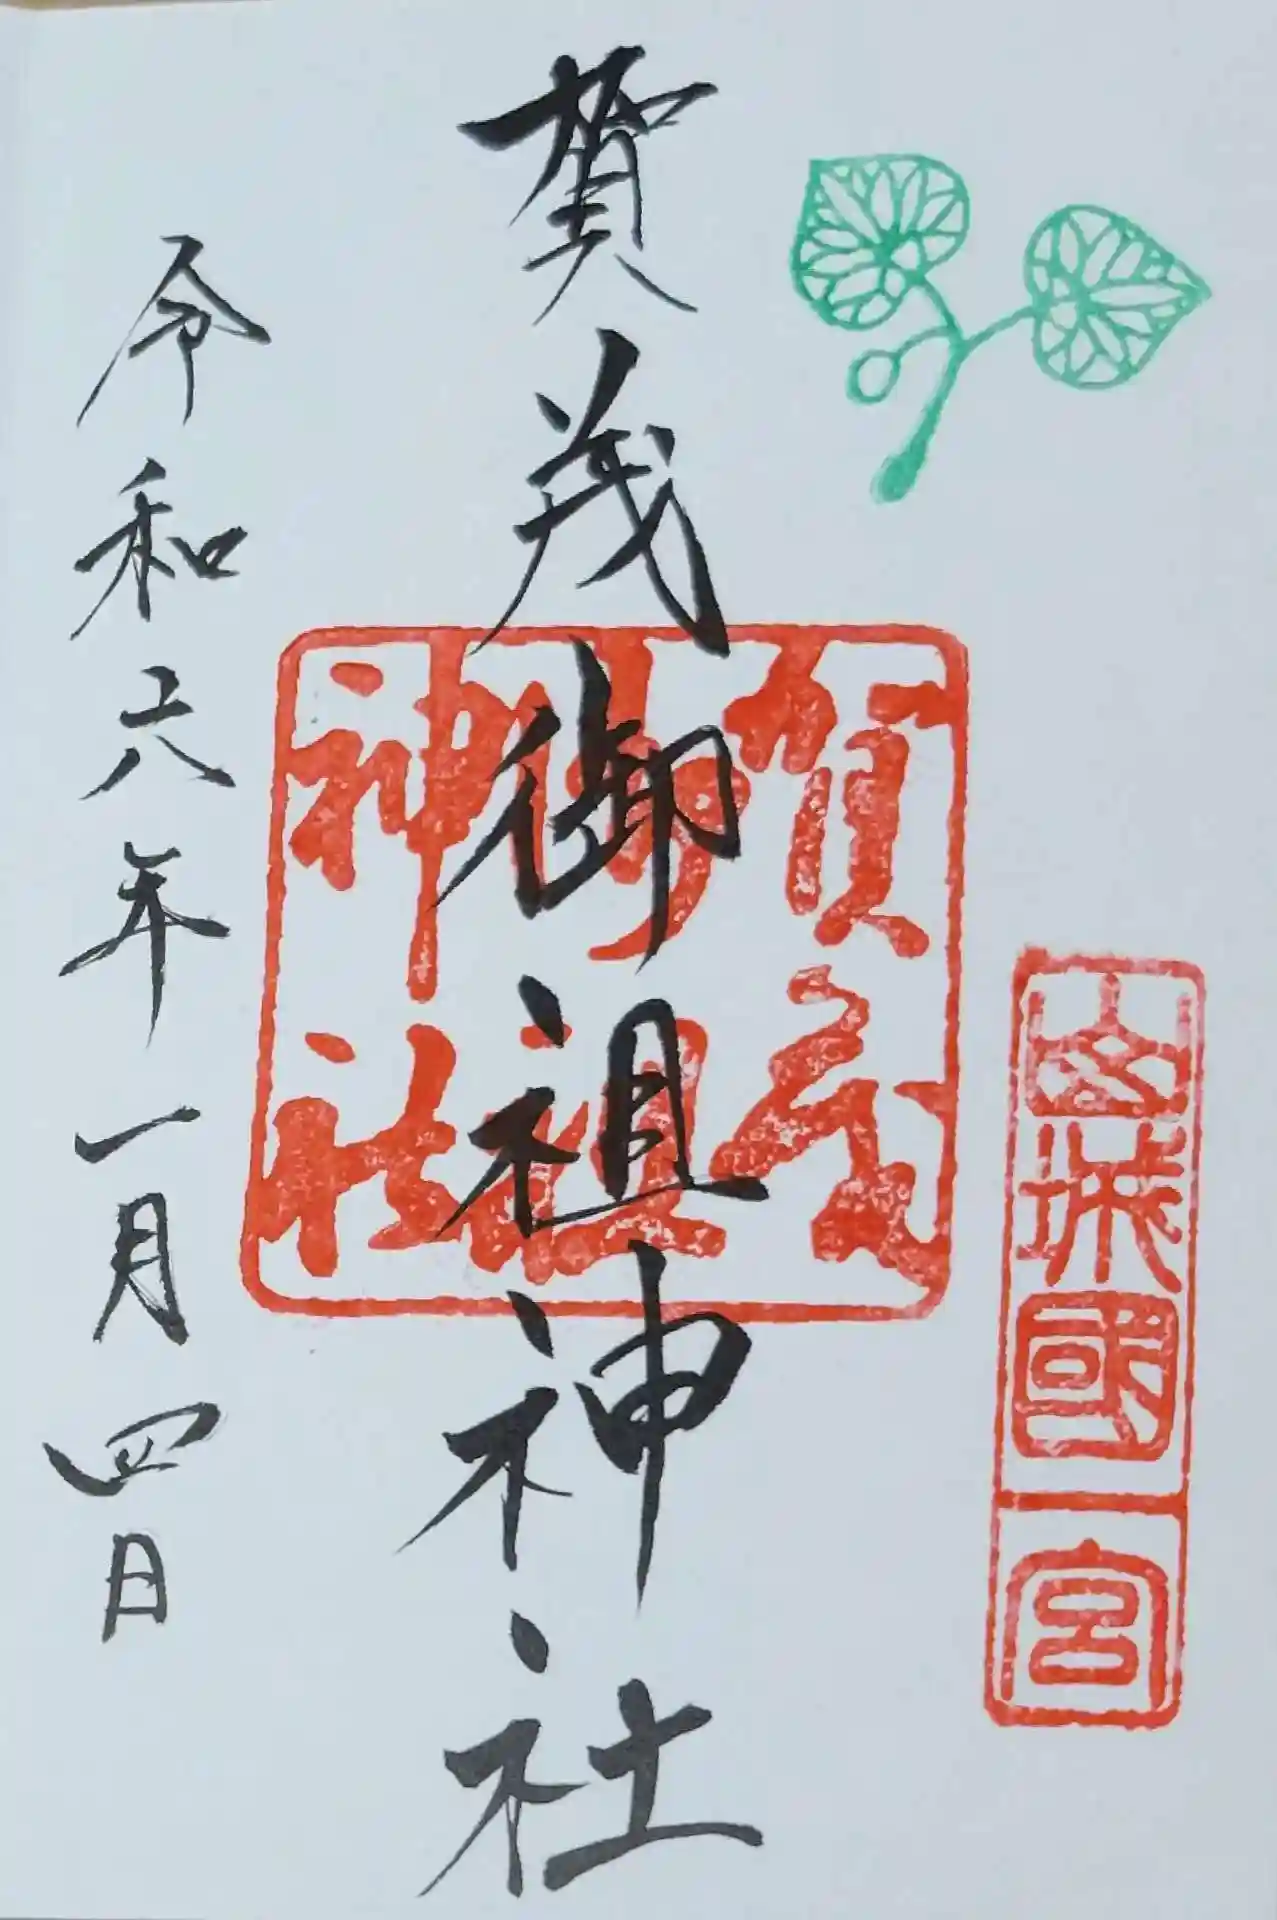 山城國一宮
賀茂御祖神社
賀茂
御祖
神社
令和六年一月四日